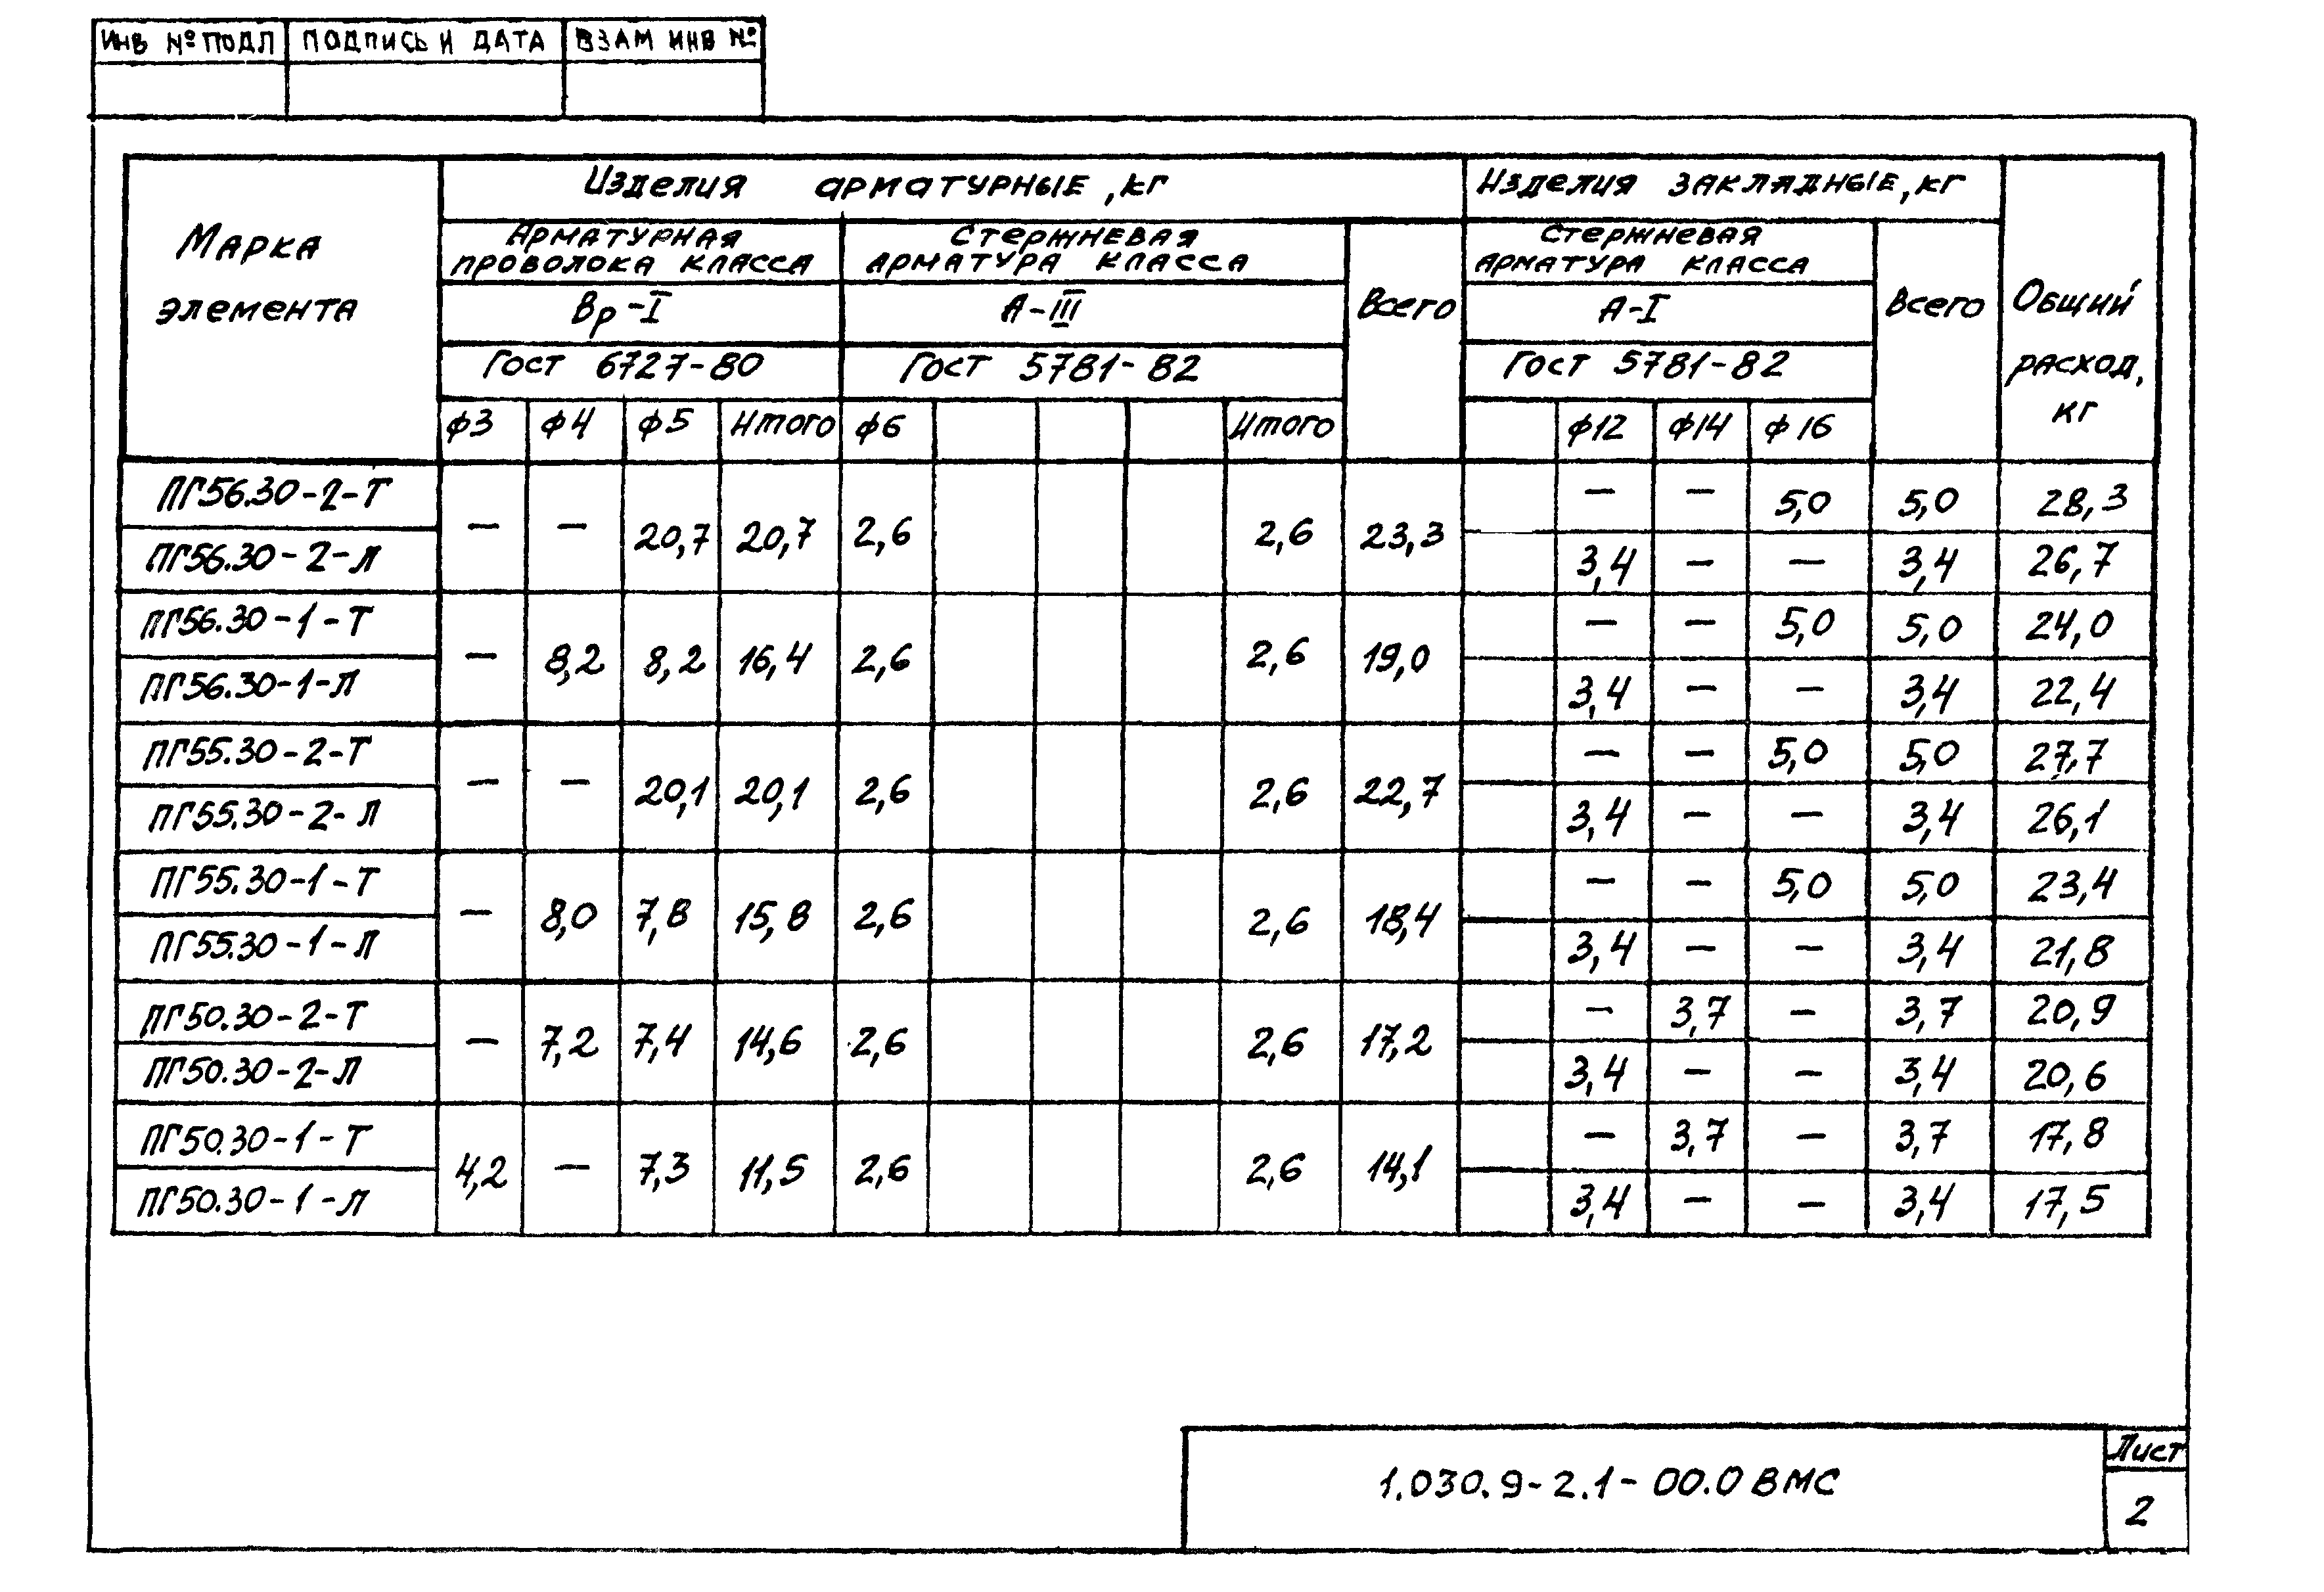 Инв № подл Подпись и дата Взам инв №
Изделия арматурные, кг Изделия закладные, кг
Марка элемента
Арматурная проволока класса Стержневая арматура класса Всего Стержневая арматура класса Всего Общий расход, кг
Вр-I А-III А-I
Гост 6727-80 Гост 5781-82 Гост 5781-82
ф3 ф4 ф5 Итого ф6 Итого ф12 ф14 ф16
ПГ56.30-2-Т — — 20,7 20,7 2,6 2,6 23,3 — — 5,0 5,0 28,3
ПГ56.30-2-л 3,4 — — 3,4 26,7
ПГ56.30-1-Т — 8,2 8,2 16,4 2,6 2,6 19,0 — — 5,0 5,0 24,0
ПГ56.30-1-Л 3,4 — — 3,4 22,4
ПГ55.30-2-Т — — 20,1 20,1 2,6 2,6 22,7 — — 5,0 5,0 27,7
ПГ55.30-2-Л 3,4 — — 3,4 26,1
ПГ55.30-1-Т — 8,0 7,8 15,8 2,6 2,6 18,4 — — 5,0 5,0 23,4
ПГ55.30-1-Л 3,4 — — 3,4 21,8
ПГ50.30-2-Т — 7,2 7,4 14,6 2,6 2,6 17,2 — 3,7 — 3,7 20,9
ПГ50.30-2-Л 3,4 — — 3,4 20,6
ПГ50.30-1-Т 4,2 — 7,3 11,5 2,6 2,6 14,1 — 3,7 — 3,7 17,8
ПГ50.30-1-л 3,4 — — 3,4 17,5
1.030.9-2.1-00.0 ВМС
Лист
2